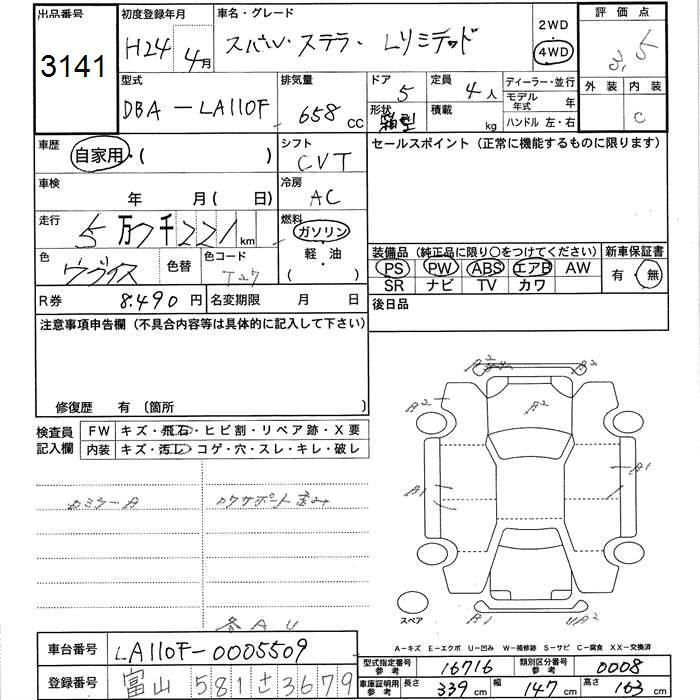 出品番号 初度登録年月 車名・グレード 2WD 評価点
3141 H24 4月 スバル・ステラ・Lリミテッド 4WD 3.5
型式 排気量 ドア 定員 ディーラー・並行 外装 内装
DBA-LA110F 658cc 5 4人 モデル年式 年 C
形状 箱型 積載 kg ハンドル 左・右
車歴 自家用・( ) シフト CVT セールスポイント(正常に機能するものに限ります)
車検 年 月( 日) 冷房 AC
走行 5万7千221km 燃料 ガソリン・軽・油( )
色 色替 色コード T27
装備品(純正品に限り〇をつけてください) 新車保証書
PS PW ABS エアB AW 有・無
SR ナビ TV カワ
R券 8.490円 名変期限 月 日 後日品
注意事項申告欄(不具合内容等は具体的に記入して下さい)
修復歴 有〔箇所 〕
検査員記入欄 FW キズ・飛石・ヒビ割・リペア跡・X要
内装 キズ・汚レ・コゲ・穴・スレ・キレ・破レ
A2 A3
A2 A2
A1 A1
カミラーA
スペア A1 UA2
各AU
A-キズ E-エクボ U-凹み W-補修跡 S-サビ C-腐食 XX-交換済
車台番号 LA110F-0005509
型式指定番号参考 16716 類別区分番号参考 0008
登録番号 富山581さ3679
車庫証明用参考 長さ 339cm 幅 147cm 高さ 163cm